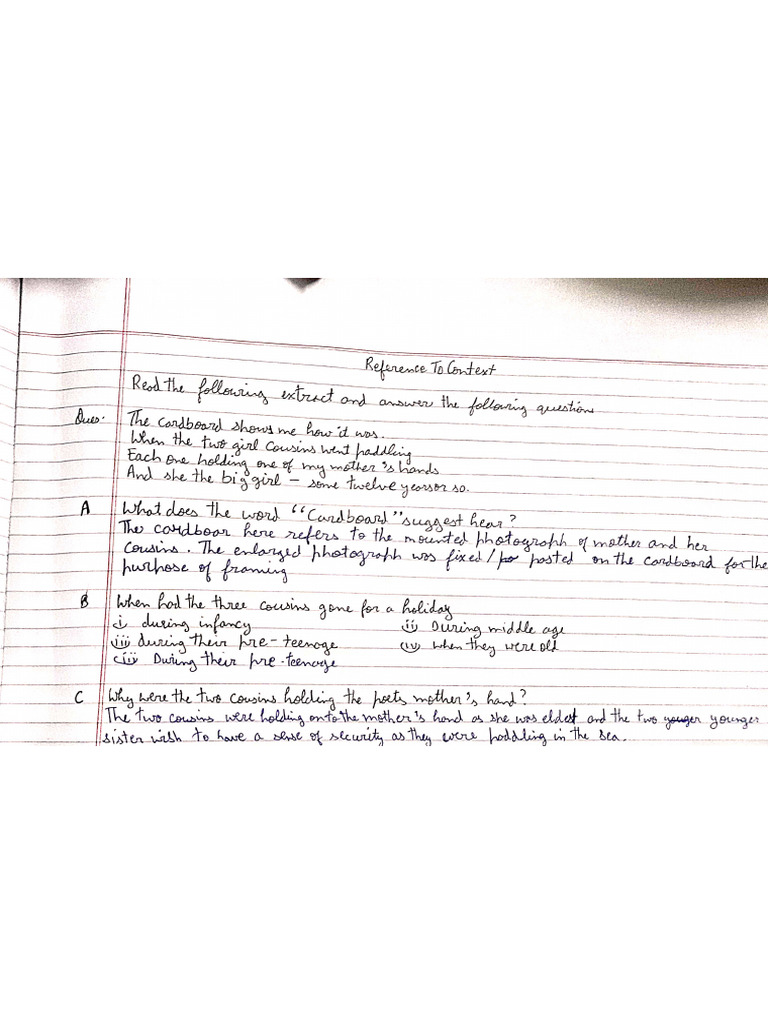 Reference To Context
Read the following extract and answer the following questions
Ques: The cardboard shows me how it was.
When the two girl cousins went paddling
Each one holding one of my mother's hands
And she the big girl - some twelve yearsor so.
A What does the word "Cardboard" suggest hear?
The cardboar here refers to the mounted photograph of mother and her
cousins. The enlarged photograph was fixed/ posted on the cardboard for the
purhose of framing
B When had the three cousins gone for a holiday
i during infancy ii During middle age
iii during their pre-teenage (iv) when they were old
(iii During their pre-teenage
C Why were the two cousins holding the poets mother's hand?
The two cousins were holding onto the mother's hand as she was eldest and the two younger
sister wish to have a sense of security as they were paddling in the sea.